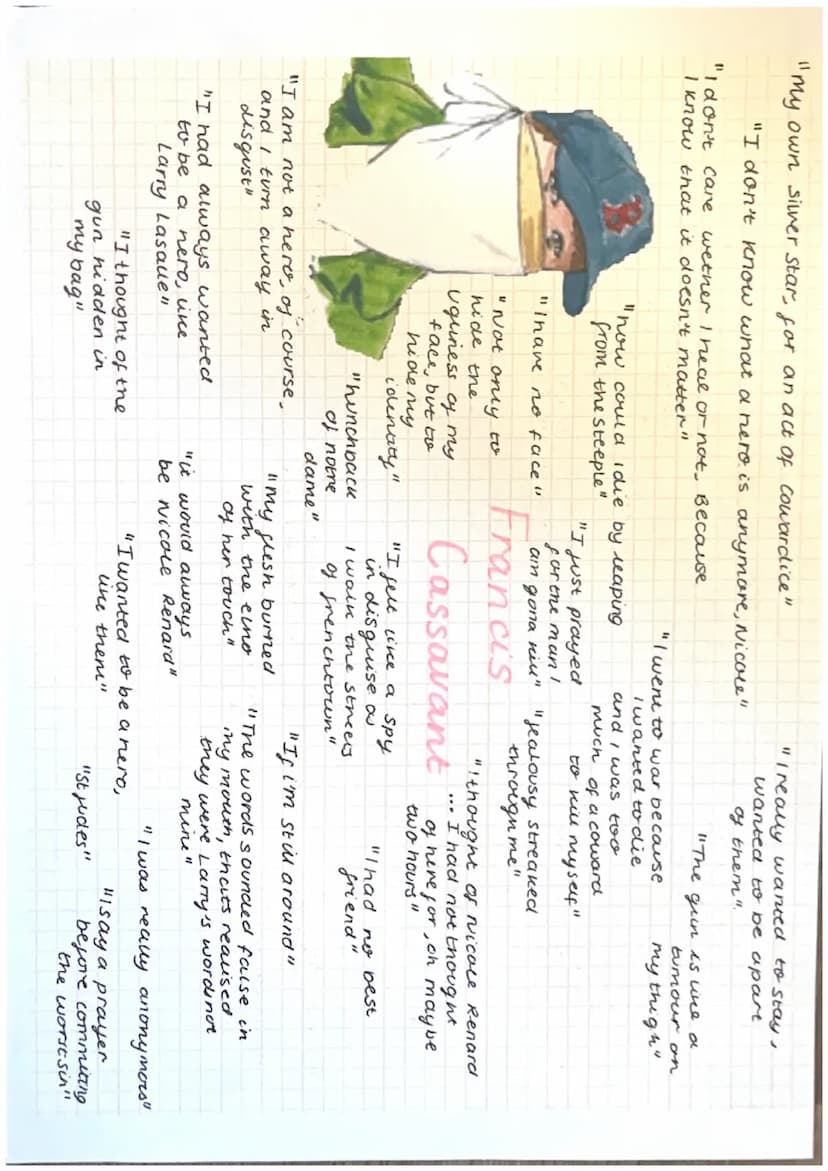 "my own silver star, for an act of cowardice"
"I don't know what a hero is anymore, Nicole"
"I don't care wether I heal or not. Because
I know that it doesn't matter"
"I really wanted to stay,
wanted to be apart
of them".
"The gun is like a
tumour on
my thigh"
"I went to war because
I wanted to die
and I was too
much of a coward
to kill myself"
"how could I die by leaping
from the steeple"
"I just prayed
for the man I
am gona kill"
"I have no face"
"Jealousy streaked
through me"
"Not only to
hide the
ugliness of my
face, but to
hide my
idenaty"
Francis
Cassavant
"I thought of Nicole Renard
... I had not thought
of her for, oh maybe
two hours"
"hunchback
of notre
dame"
"I fell like a spy
in disguise as
I walk the streets
of frenchtown"
"I had no best
friend"
B
"I am not a hero, of course,
and I turn away in
disgust"
"My flesh burned
with the echo
of her touch"
"If i'm still around"
"I had always wanted
to be a hero, like
Larry Lasalle"
"it would always
be Nicole Renard"
"The words sounded false in
my mouth, thats realised
they were Larry's word not
mine"
"I thought of the
gun hidden in
my bag"
"I wanted to be a hero,
like them"
"I was really anonymous"
"St judes"
"I say a prayer
before commiting
the worst sin"